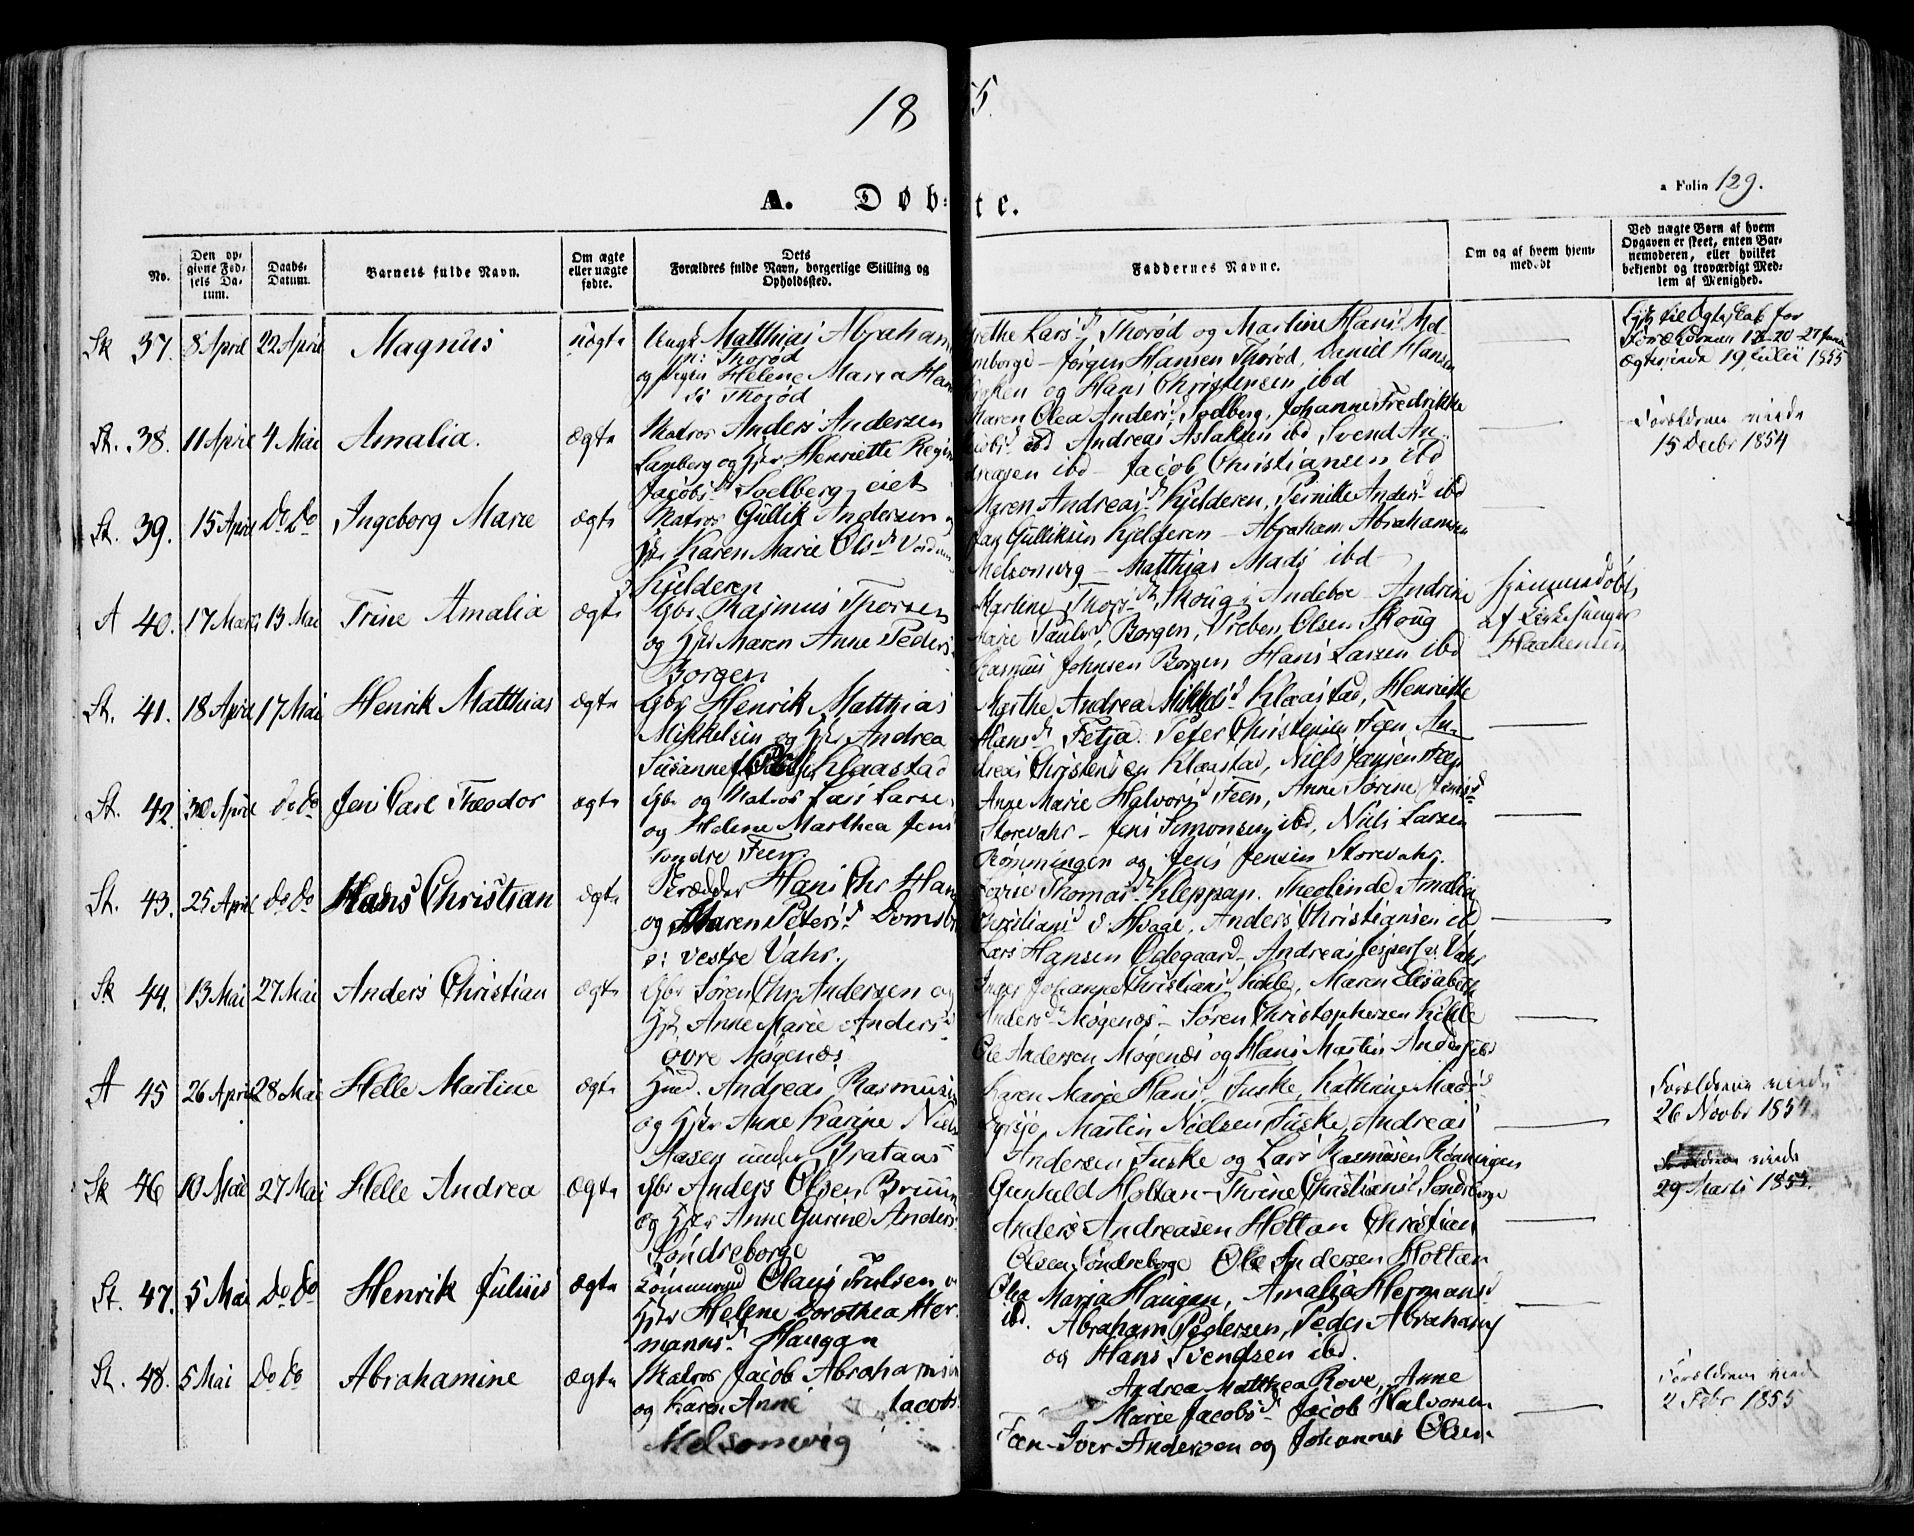 1855.
a Folio 129.
A. Døbte.
No.
Den opgivne Fødsels Datum.
Daabs-Datum.
Barnets fulde Navn.
Om ægte eller uægte fødte.
Dets Forældres fulde Navn, borgerlige Stilling og Opholdssted.
Faddernes Navne.
Om og af hvem hjemmedøbt
Ved uægte Børn af hvem Opgaven er skeet, enten Barnemoderen, eller hvilket bekjendt og troværdigt Medlem af Menighed.
Sk 37. 8 April 22 April Magnus uægte
Ungk Matthias Abraham
Thorød
og Pigen Helene Maria Hans
Thorød
Grethe Lars Thorød og Martine Hans
Jørgen Hansen Thorød, Daniel Hansen
og Hans Christensen ibd
Forældrene 13-20-27 Juni
19 Julii 1855
St. 38. 11 April 4 Mai Amalia. ægte
Matros Anders Andersen
Lamberg og Hstr Henriette Regin
Jacobsd Soelberg, eiet
Maren Olea Anders Soelberg, Johanne Fredrikke
Andreas Aslaksen ibd Svend An-
dreasen ibd - Jacob Christiansen ibd
Forældrene viede
15 Decbr 1854
St. 39. 15 April do do Ingeborg Marie ægte
Matros Gullik Andersen og
Hstr Karen Marie Olsd
Kjelderen
Maren Andreasd Kjelderen, Pernille Anders ibd
Gulliksen Kjelderen - Abraham Abrahamsen
Melsomvig - Matthias Mads ibd
A 40. 17 Marts 13 Mai Trine Amalia ægte
Gbr. Rasmus Thorsen
og Hstr Maren Anne Peders
Borgen
Martine Thorsd Skoug i Andeboe - Andrine
Marie Paulsd Borgen, Preben Olsen Skoug
Rasmus Johnsen Borgen Hans Larsen ibd
hjemmedøbt
af Kirkesanger
Haakensen
St. 41. 18 April 17 Mai Henrik Matthias ægte
Gbr Henrik Matthias
Mikkelsen og Hstr Andrea
Susanne Klaastad
Marthe Andrea Mikkelsd Klaastad, Henriette
Hansd Fetja. Peter Christensen Feen, An-
dreas Christensen Klaastad, Niels Jansen Feen
St. 42. 30 April do do Jens Carl Theodor ægte
Gbr og Matros Lars Larsen
og Helene Marthea Jens
Søndre Feen.
Anne Marie Halvors Feen, Anne Sørine Jensd
Storevahr - Jens Simonsen ibd, Niels Larsen
Rømmingen og Jens Jensen Storevahr.
St. 43. 25 April do do Hans Christian ægte
Skrædder Hans Chr Hans
og Maren Petersd Domsb
p: vestre Vahr.
Thomasd Kleppan. Theolinde Amalia
Christiansd Hvaae, Anders Christiansen ibd
Lars Hansen Ødegaard - Andreas Jespers v. Vahr
Sk 44. 13 Mai 27 Mai Anders Christian ægte
Gbr Søren Chr. Andersen og
Hstr Anne Marie Anders
øvre Møgenæs
Inger Johanne Christiansd Kihle, Maren Elisabeth
Andersd Møgenæs - Søren Christophersen Kihle
Ole Andersen Møgenæs og Hans Martin Anders ibd
A 45 26 April 28 Mai Helle Martine ægte
Hmd. Andreas Rasmusen
og Hstr Anne Karine Niels
Aasen under Prataas
Karen Marie Hans Fuske, Kathrine Madsd
Martin Nielsen Fuske, Andreas
Andersen Fuske og Lars Rasmusen Rønningen
Forældrene viede
26 Novbr 1854.
Sk 46 10 Mai 27 Mai Helle Andrea ægte
Gbr Anders Olsen Bruun
og Hstr Anne Gurine Anders
Søndreborge
Gunhild Holtan - Thrine Christiansd Søndreborge
Anders Andreasen Holtan Christian
Olsen Søndreborge Ole Andersen Holtan
Forældrene viede
29 Marts 1855.
St. 47. 5 Mai do do Henrik Julius ægte
Tømmermd Olaus Trulsen og
Hstr Helene Dorothea Her-
mannsd Haugan
Olea Maria Haugan, Amalia Hermansd
ibd. Abraham Pedersen, Peder Abrahams
og Hans Svendsen ibd.
St. 48. 5 Mai do do Abrahamine ægte
Matros Jacob Abrahamsen
og Karen Anne Jacobs
Melsomvig
Andrea Matthea Rove, Anne
Marie Jacobsd Jacob Halvorsen
Feen - Iver Andersen og Johannes Olsen
Forældrene viede
2 Febr 1855